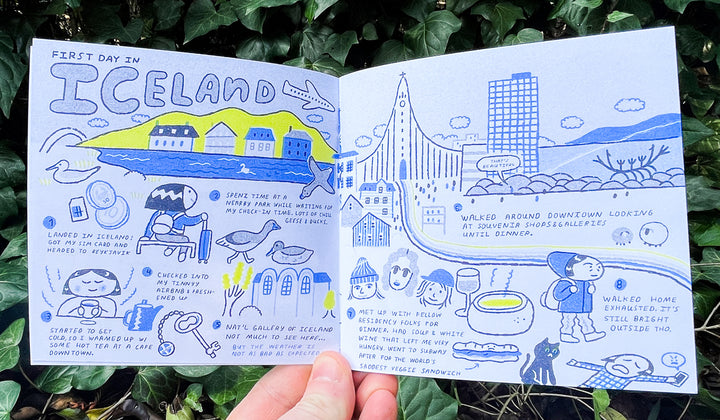 FIRST DAY IN
ICELAND
1
LANDED IN ICELAND;
GOT MY SIM CARD AND
HEADED TO REYKJAVIK
2
SPENZ TIME AT A
NEARBY PARK WHILE WAITING FOR
MY CHECK-IN TIME. LOTS OF CHILL
GEESE & DUCKS.
3
STARTED TO GET
COLD, SO I WARMED UP W/
SOME HOT TEA AT A CAFE
DOWNTOWN.
4
CHECKED INTO
MY TINNYY
AIRBNB & FRESH-
ENED UP
5
NAT'L GALLERY OF ICELAND
NOT MUCH TO SEE HERE...
BUT THE WEATHER IS
NOT AS BAD AS EXPECTED
THAT'S
BEAUTIFUL
6
WALKED AROUND DOWNTOWN LOOKING
AT SOUVENIR SHOPS & GALLERIES
UNTIL DINNER.
7
MET UP WITH FELLOW
RESIDENCY FOLKS FOR
DINNER. HAD SOUP & WHITE
WINE THAT LEFT ME VERY
HUNGRY. WENT TO SUBWAY
AFTER FOR THE WORLD'S
SADDEST VEGGIE SANDWICH
8
WALKED HOME
EXHAUSTED. IT'S
STILL BRIGHT
OUTSIDE THO.